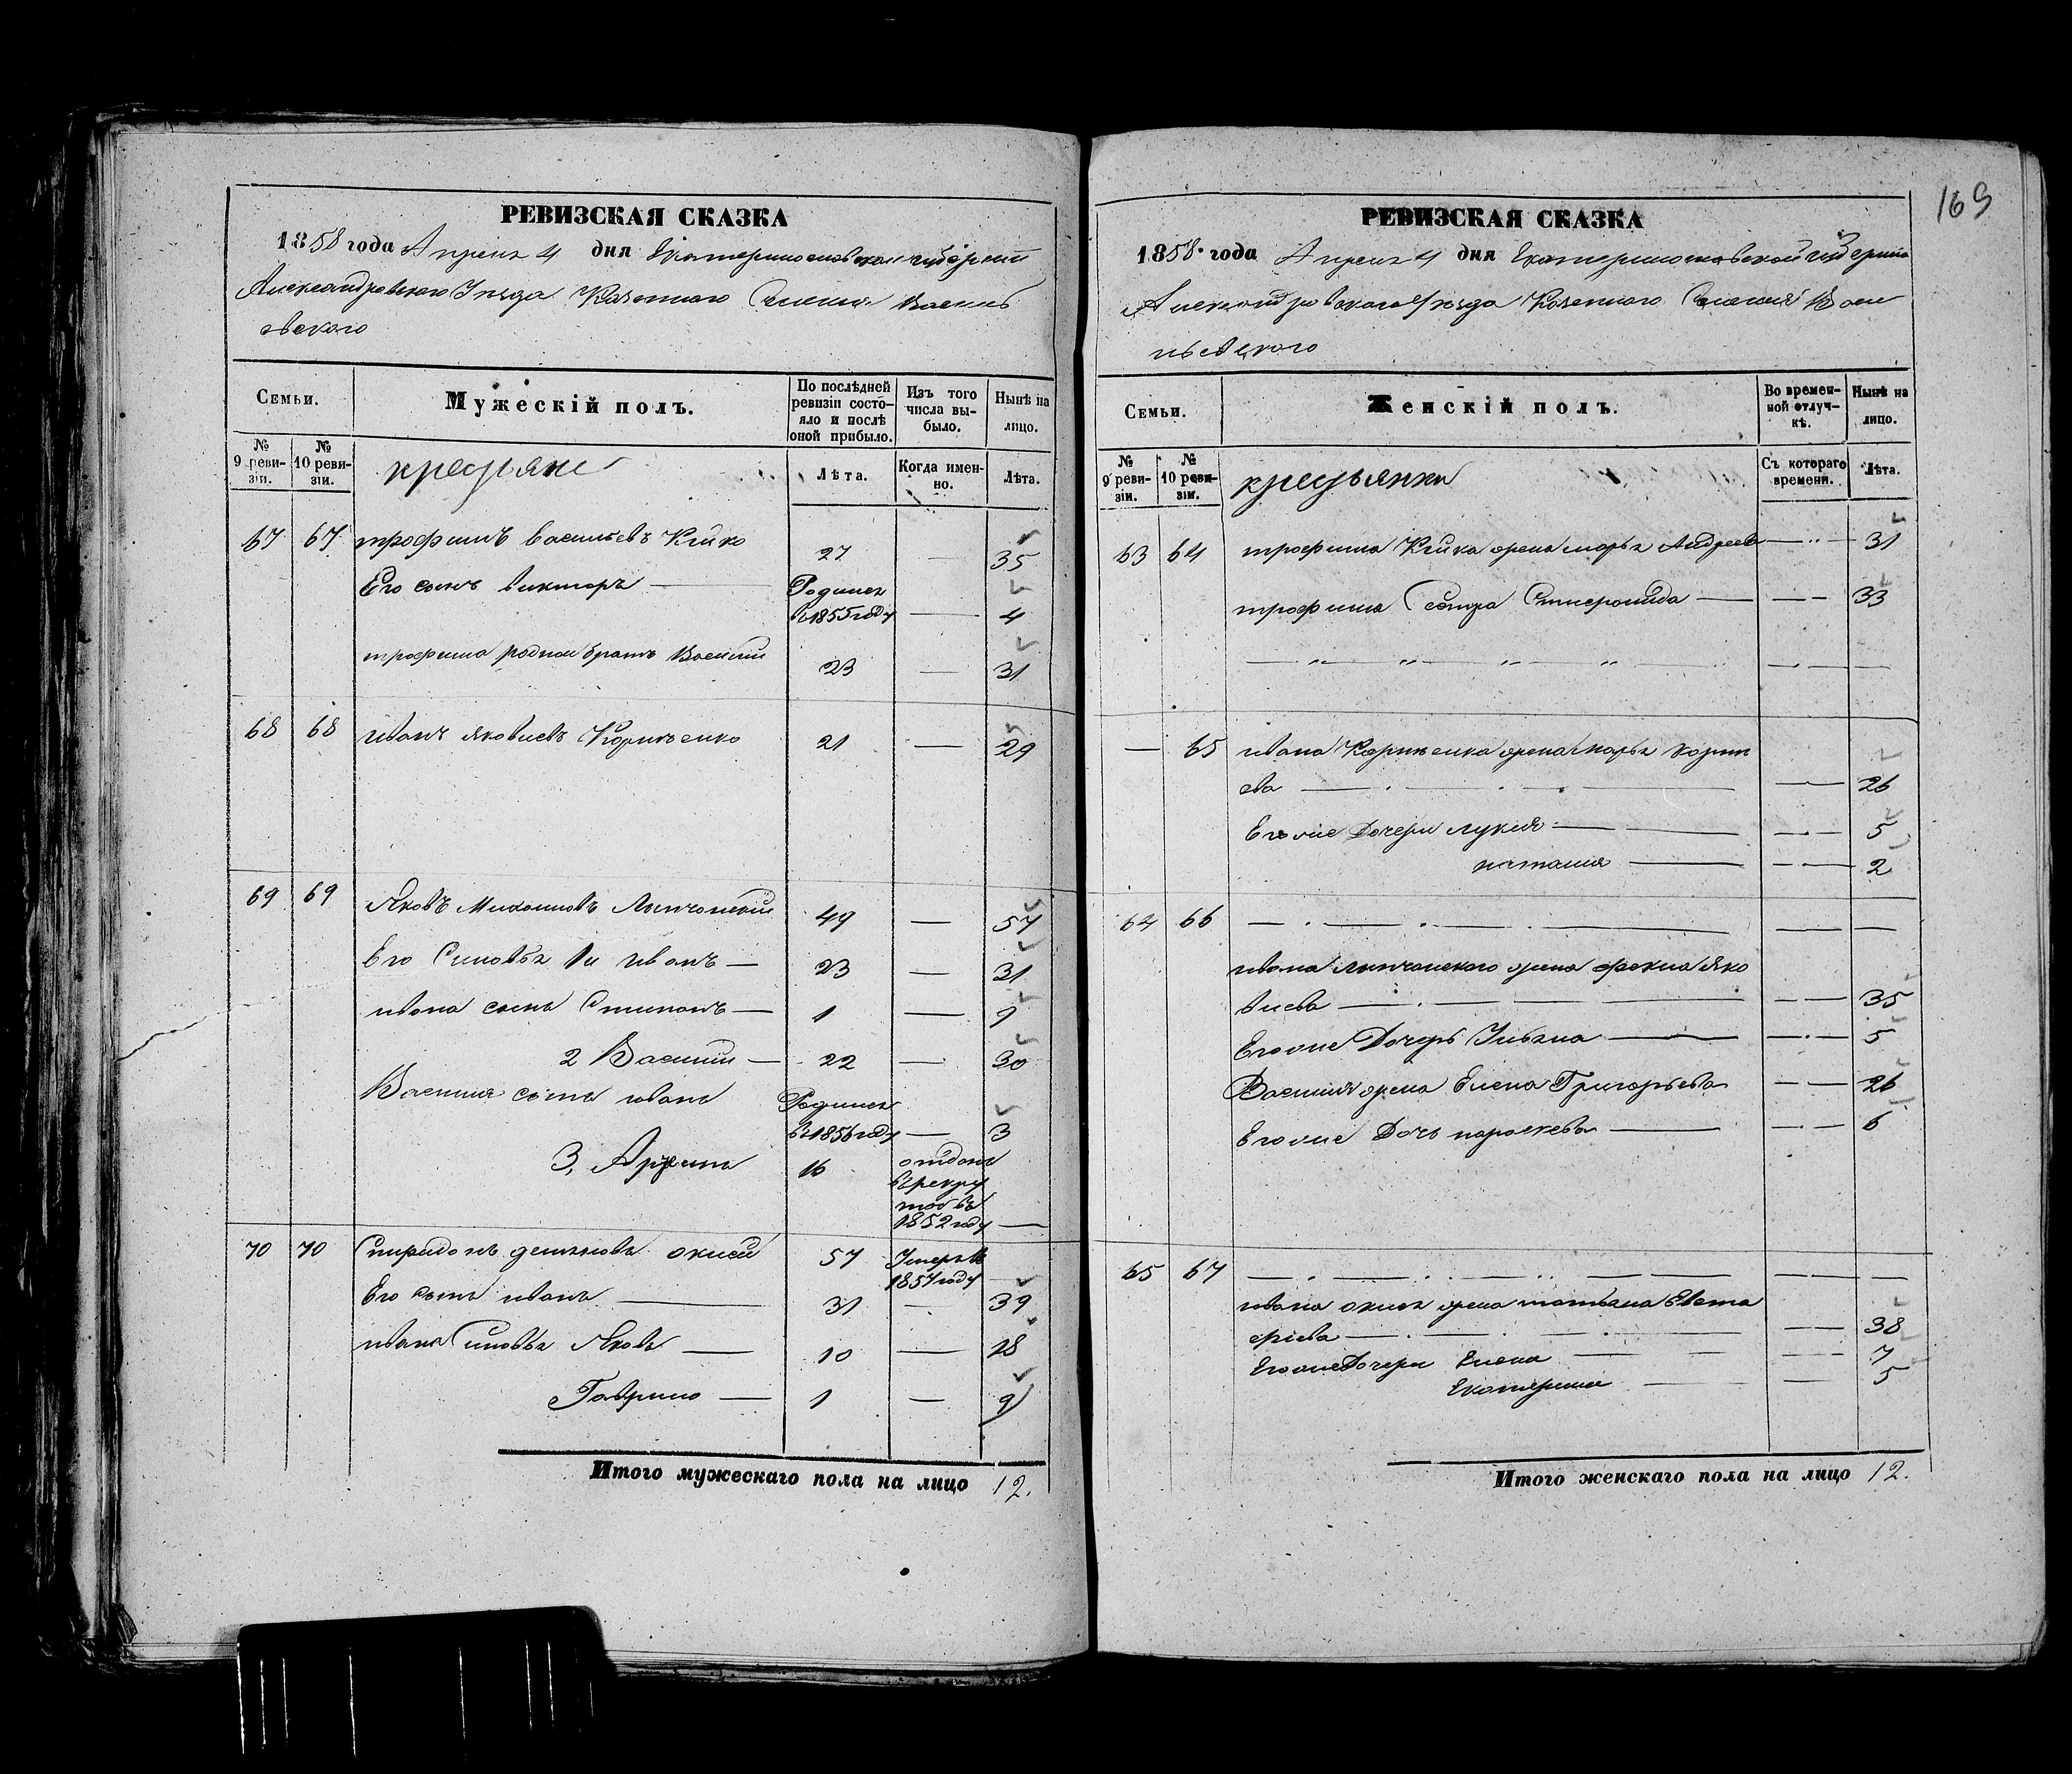 РЕВИЗСКАЯ СКАЗКА
1858 года Апреля 4 дня Екатеринославской губернии
Александровского Уезда Казенного Селения Василь
евского
Семьи.
Мужескій полъ.
По послѣдней ревизіи состояло и послѣ оной прибыло.
Изъ того числа выбыло.
Нынѣ на лицо.
№ 9 ревизіи.
№ 10 ревизіи.
крестьяне
Лѣта.
Когда именно.
Лѣта.
67 67 трофимъ васильевъ Кийко 27 — 35
Его сынъ викторъ — Родился
в 1855 году — 4
трофима родной братъ Василий 23 — 31
68 68 иванъ яковлевъ Корниенко 21 — 29
69 69 Яковъ 49 — 57
Его Сыновья 1й иванъ — 23 — 31
ивана сынъ Степанъ — 1 — 9
2 Василий — 22 — 30
Василия сынъ иванъ Родился
в 1856 году — 3
3, 16 отданъ
в рекру
тов въ
1852 году —
70 70 Спиридонъ 57 Умеръ в
1857 году —
Его сынъ иванъ — 31 — 39
ивана Сыновья Яковъ — 10 — 18
Гаврило — 1 — 9
Итого мужескаго пола на лицо 12.
169
РЕВИЗСКАЯ СКАЗКА
1858 года Апреля 4 дня Екатеринославской губернии
Александровского Уезда Казенного Селения Васи
льевского
Семьи.
Женскій полъ.
Во временной отлучкѣ.
Нынѣ на лицо.
№ 9 ревизіи.
№ 10 ревизіи.
крестьянки
Съ котораго времени.
Лѣта.
63 64 трофима Кийка жена марья Андреева — 31
трофима Сестра — 33
— 65 ивана Корниенка жена марья корни
ева — 26
Его же Дочери лукия — 5
наталия — 2
64 66 —
ивана жена фекла яко
влева — 35
Его же Дочерь Ульяна — 5
Василия жена Елена Григорьева — 26
Его же Дочь параскева — 6
65 67 —
ивана жена татьяна Евста
фиева — 38
Его же Дочери Елена — 7
Екатерина — 5
Итого женскаго пола на лицо 12.